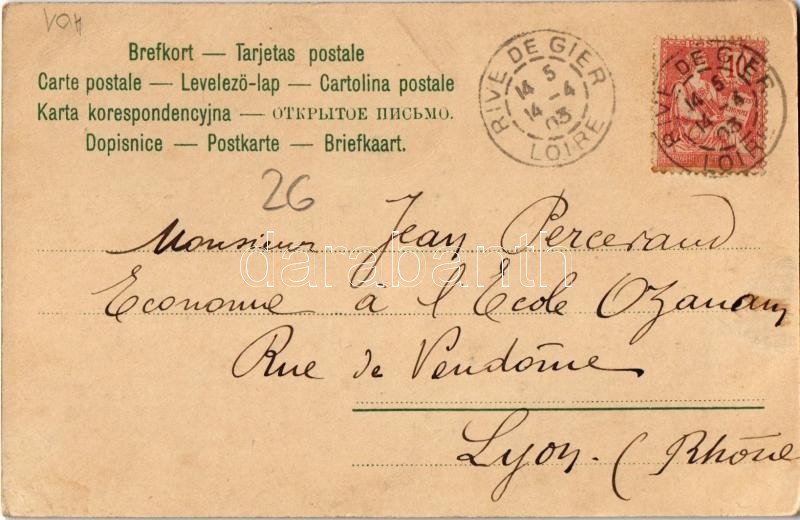 VOH
Brefkort — Tarjetas postale
Carte postale — Levelezö-lap — Cartolina postale
Karta korespondencyjna — ОТКРЫТОЕ ПИСЬМО.
Dopisnice — Postkarte — Briefkaart.
RIVE DE GIER
14 5
14 -4
03
LOIRE
10
RIVE DE GIER
14 5
14 -4
03
LOIRE
26
Monsieur Jean Percerand
Econome à l'Ecole Ozanam
Rue de Vendôme
Lyon. (Rhône
darabanth